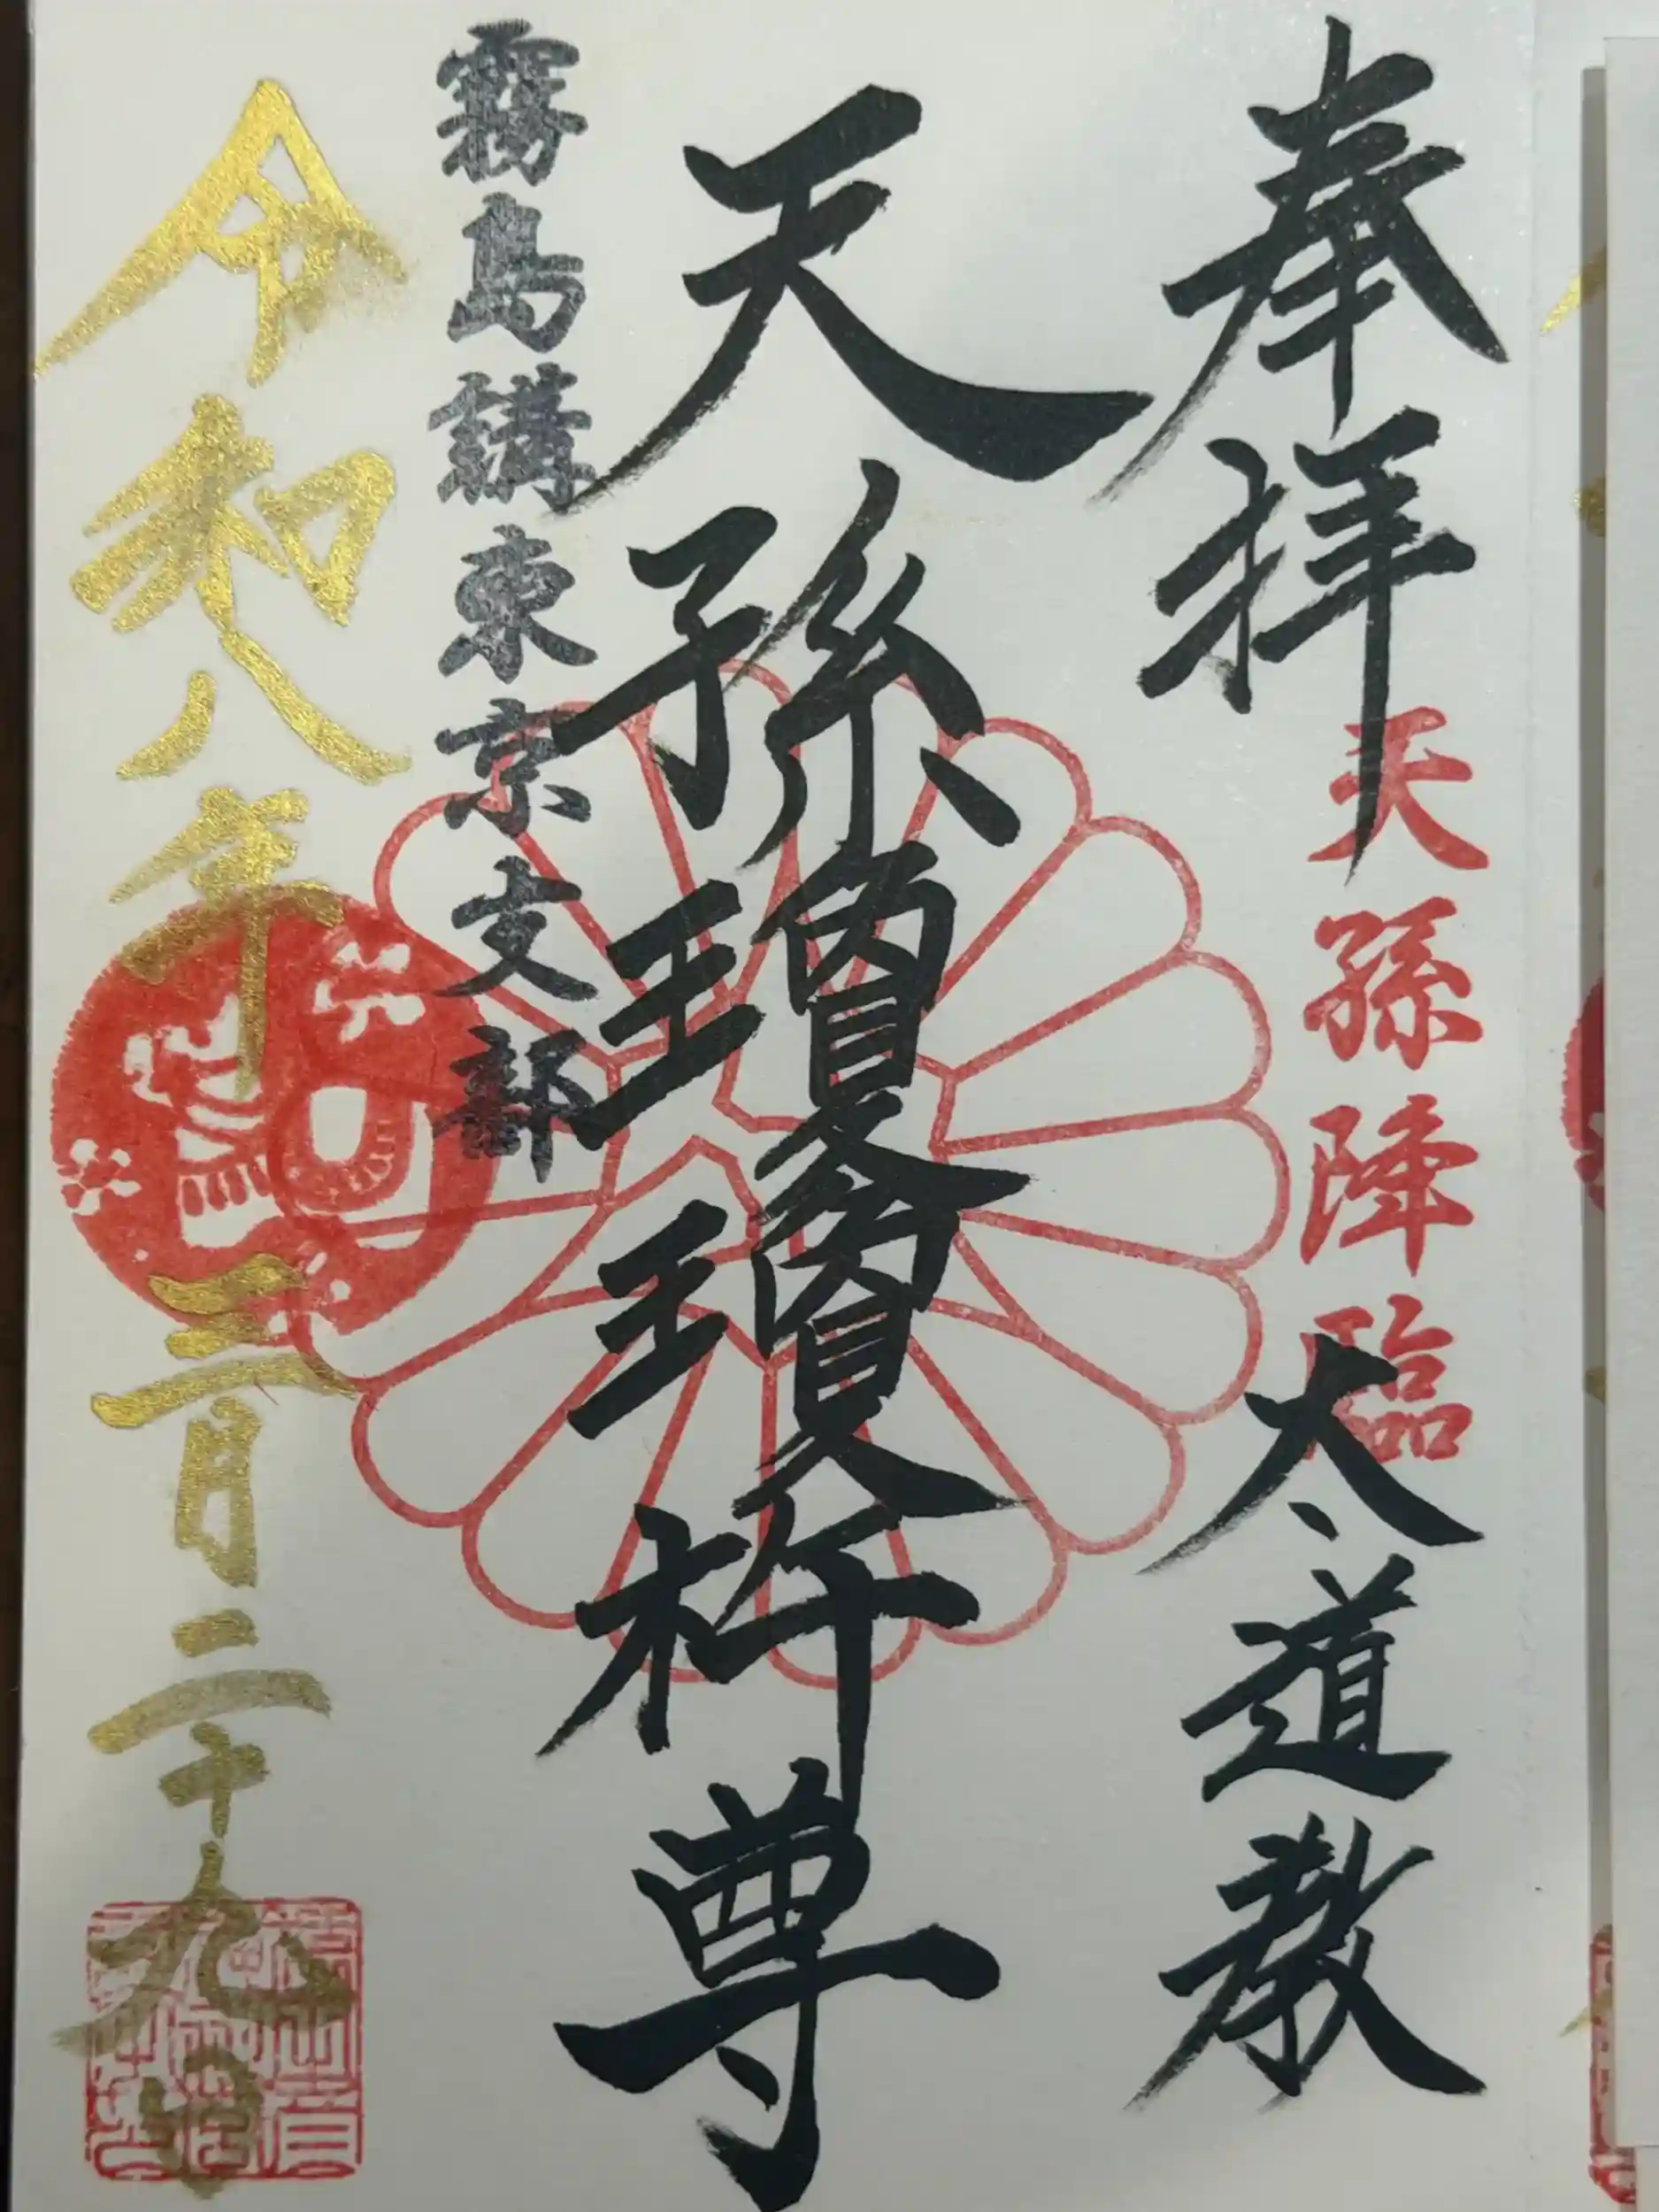 奉拝
天孫降臨
太道教
天孫瓊瓊杵尊
霧島講東京支部
令和八年三月二十九日